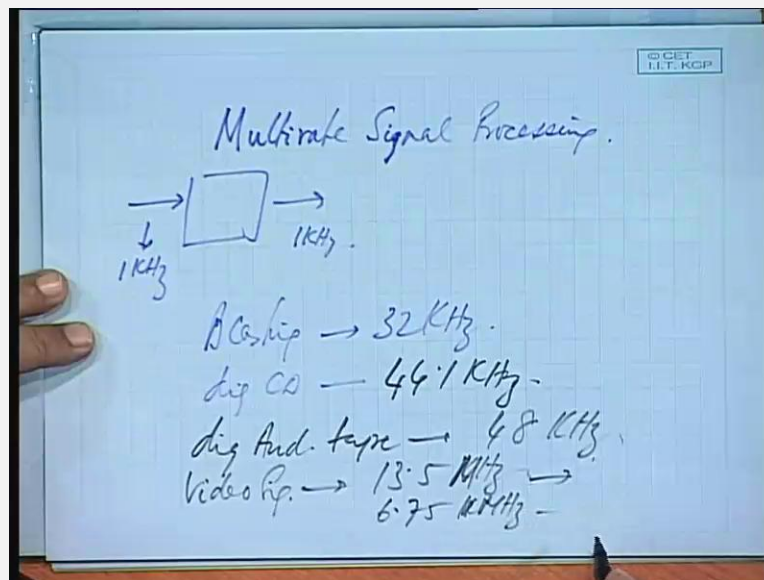 © CET
I.I.T. KGP
Multirate Signal Processing.
1 KHz
1 KHz.
B Casting → 32 KHz.
dig CD — 44.1 KHz.
dig Aud. tape → 48 KHz.
Video Sig. → 13.5 MHz →
6.75 MHz -